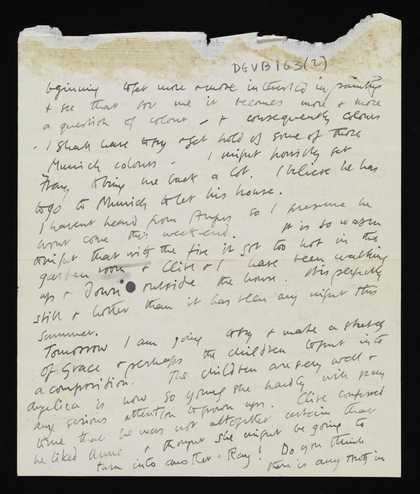 DGVB163(2)
beginning to get more & more interested in painting
& see that for me it becomes more & more
a question of colour - & consequently colours
- I shall have to try & get hold of some of those
Munich colours - I might possibly get
to bring me back a lot. I believe he has
to go to Munich to let his house.
I havent heard from so I presume he
wont come this week-end. It is so warm
tonight that with the fire it got too hot in the
garden room & Clive & I have been walking
up & down outside the house. Its perfectly
still & hotter than it has been any night this
summer.
Tomorrow I am going to try & make a study
of Grace & perhaps the children to put into
a composition. The children are very well &
Angelica is now so young she hardly will pay
any serious attention to grown ups. Clive confessed
to me that he was not altogether certain that
he liked Anne & thought she might be going to
turn into another Ray! Do you think
there is any truth in